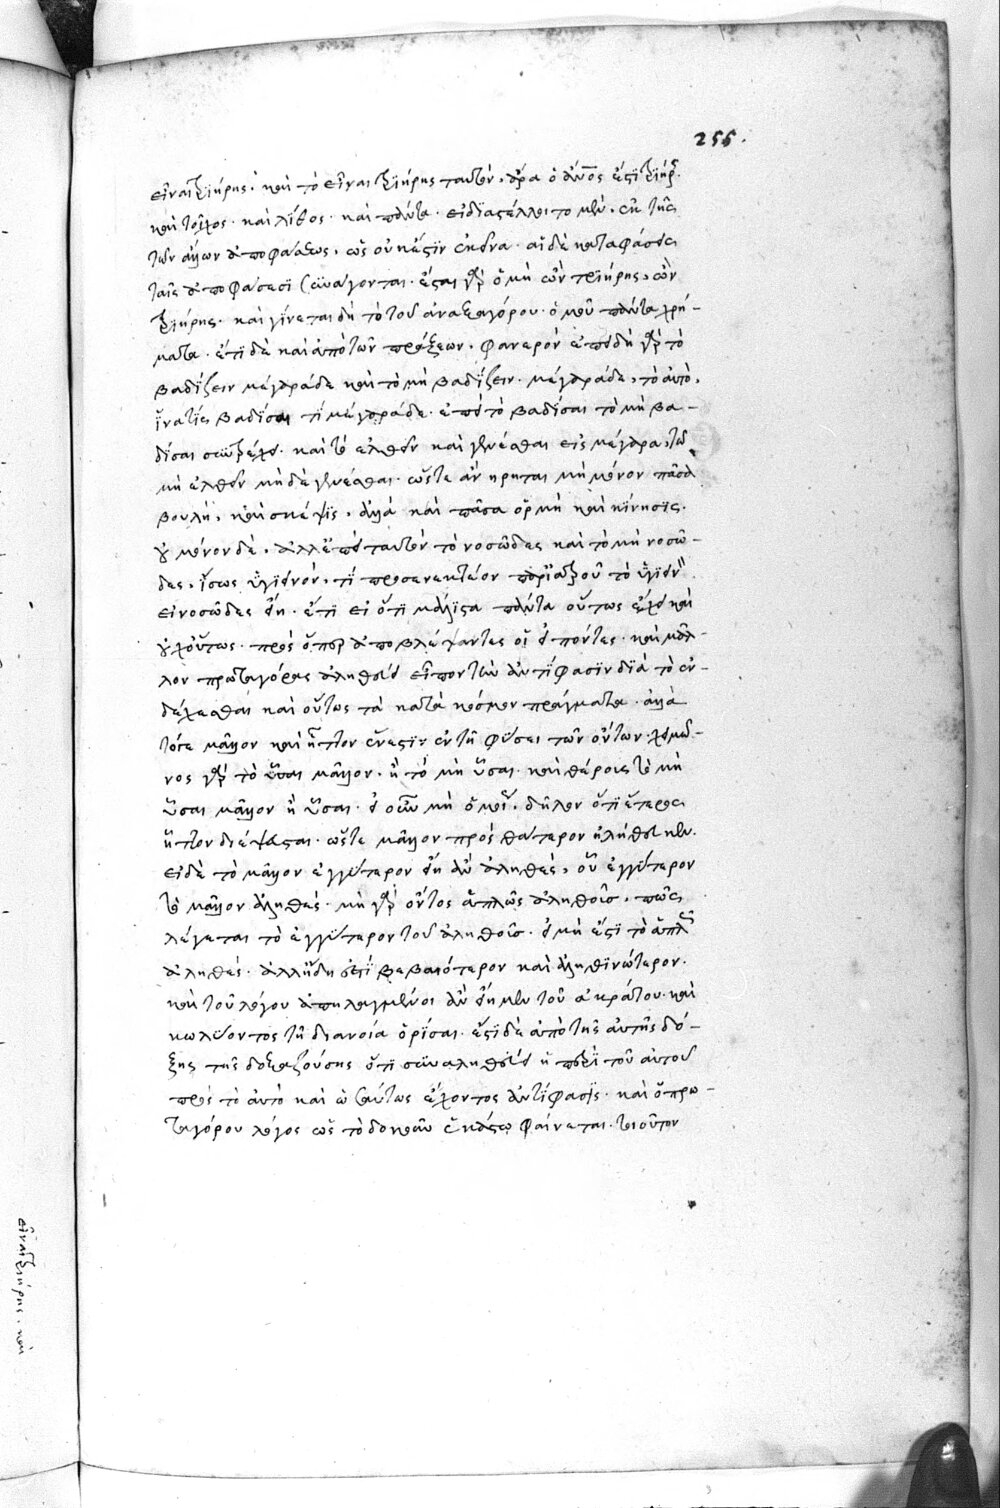 255.
εἶναι τριήρης· καὶ τὸ εἶναι τριήρης ταυτόν. ἆρα ὁ ἄνος ἐστὶ τριήρης
καὶ τοῖχος· καὶ λίθος· καὶ πάντα· εἰ διαστέλλοι το μὲν, ἐκ τῆς
τῶν ἄλλων ἀποφάσεως, ὡς οὐκ ἔστιν
αἱ δὲ καταφάσεις
ταῖς ἀποφάσεσι συνάγονται· ἔσται γὰρ ὁ μὴ ὢν τριήρης, ὢν
τριήρης· καὶ γίνεται δὴ τὸ τοῦ ἀναξαγόρου· ὁμοῦ πάντα χρή-
ματα· ἔτι δὲ καὶ ἀπὸ τῶν πράξεων· φανερὸν ἐπειδὴ γὰρ τὸ
βαδίζειν μέγαράδε καὶ τὸ μὴ βαδίζειν· μέγαράδε, τὸ αὐτὸ,
ἵνα τίς βαδίσαι τί μέγαράδε· ἐπεὶ τὸ βαδίσαι τὸ μὴ βα-
δίσαι συντρέχει· καὶ τὸ ἐλθεῖν καὶ γενέσθαι εἰς μέγαρα, τῶ
μὴ ἐλθεῖν μὴ δὲ γενέσθαι· ὥστε ἀνήρηται μὴ μόνον πᾶσα
βουλὴ, καὶ σκέψις, ἀλλὰ καὶ πᾶσα ὁρμὴ καὶ κίνησις·
οὐ μόνον δὲ, ἀλλ' ἐπεὶ ταυτὸν τὸ νοσῶδες καὶ τὸ μὴ νοσῶ-
δες, ἴσως ὑγιεινόν, τί προσενεκτέον
τὸ ὑγιεινὸν
εἰ νοσῶδες εἴη· ἔτι εἰ ὅτι μάλιστα πάντα οὕτως ἔχει καὶ
οὐχ οὕτως· πρὸς ὅπερ ἀποβλέψαντες οἱ εἰπόντες· καὶ μᾶλ-
λον πρωταγόρας ἀληθεύειν εἶπον τὴν ἀντίφασιν διὰ τὸ ἐν-
δέχεσθαι καὶ οὕτως τὰ κατὰ κόσμον πράγματα· ἀλλὰ
τότε μᾶλλον καὶ ἧττον ἔνεστιν ἐν τῇ φύσει τῶν ὄντων· χειμῶ-
νος γὰρ τὸ ὗσαι μᾶλλον, ἢ τὸ μὴ ὗσαι· καὶ θέρους τὸ μὴ
ὗσαι μᾶλλον ἢ ὗσαι· εἰ οὖν μὴ ὁμοῦ, δῆλον ὅτι ἕτερος
ἧττον διέψευσται· ὥστε μᾶλλον πρὸς θάτερον
εἰ δὲ τὸ μᾶλλον ἐγγύτερον εἴη ἂν ἀληθὲς, οὗ ἐγγύτερον
τὸ μᾶλλον ἀληθές· μὴ γὰρ ὄντος ἁπλῶς ἀληθοῦς, πῶς
λέγεται τὸ ἐγγύτερον τοῦ ἀληθοῦς· εἰ μὴ ἔστι τὸ ἁπλῶς
ἀληθές· ἀλλ' ἤδη ἐστὶ βεβαιότερον καὶ ἀληθινώτερον·
καὶ τοῦ λόγου ἀπηλλαγμένοι ἂν εἴημεν τοῦ ἀκράτου· καὶ
κωλύοντος τῆ διανοία ὁρίσαι· ἔστι δὲ ἀπὸ τῆς αὐτῆς δό-
ξης τῆς δοξαζούσης ὅτι συναληθεύει ἡ περὶ τοῦ αὐτοῦ
πρὸς τὸ αὐτὸ καὶ ὡσαύτως ἔχοντος ἀντίφασις· καὶ ὁ πρω-
ταγόρου λόγος ὡς τὸ δοκοῦν ἑκάστῳ φαίνεται· τοιοῦτον
εἶναι τριήρης. καὶ